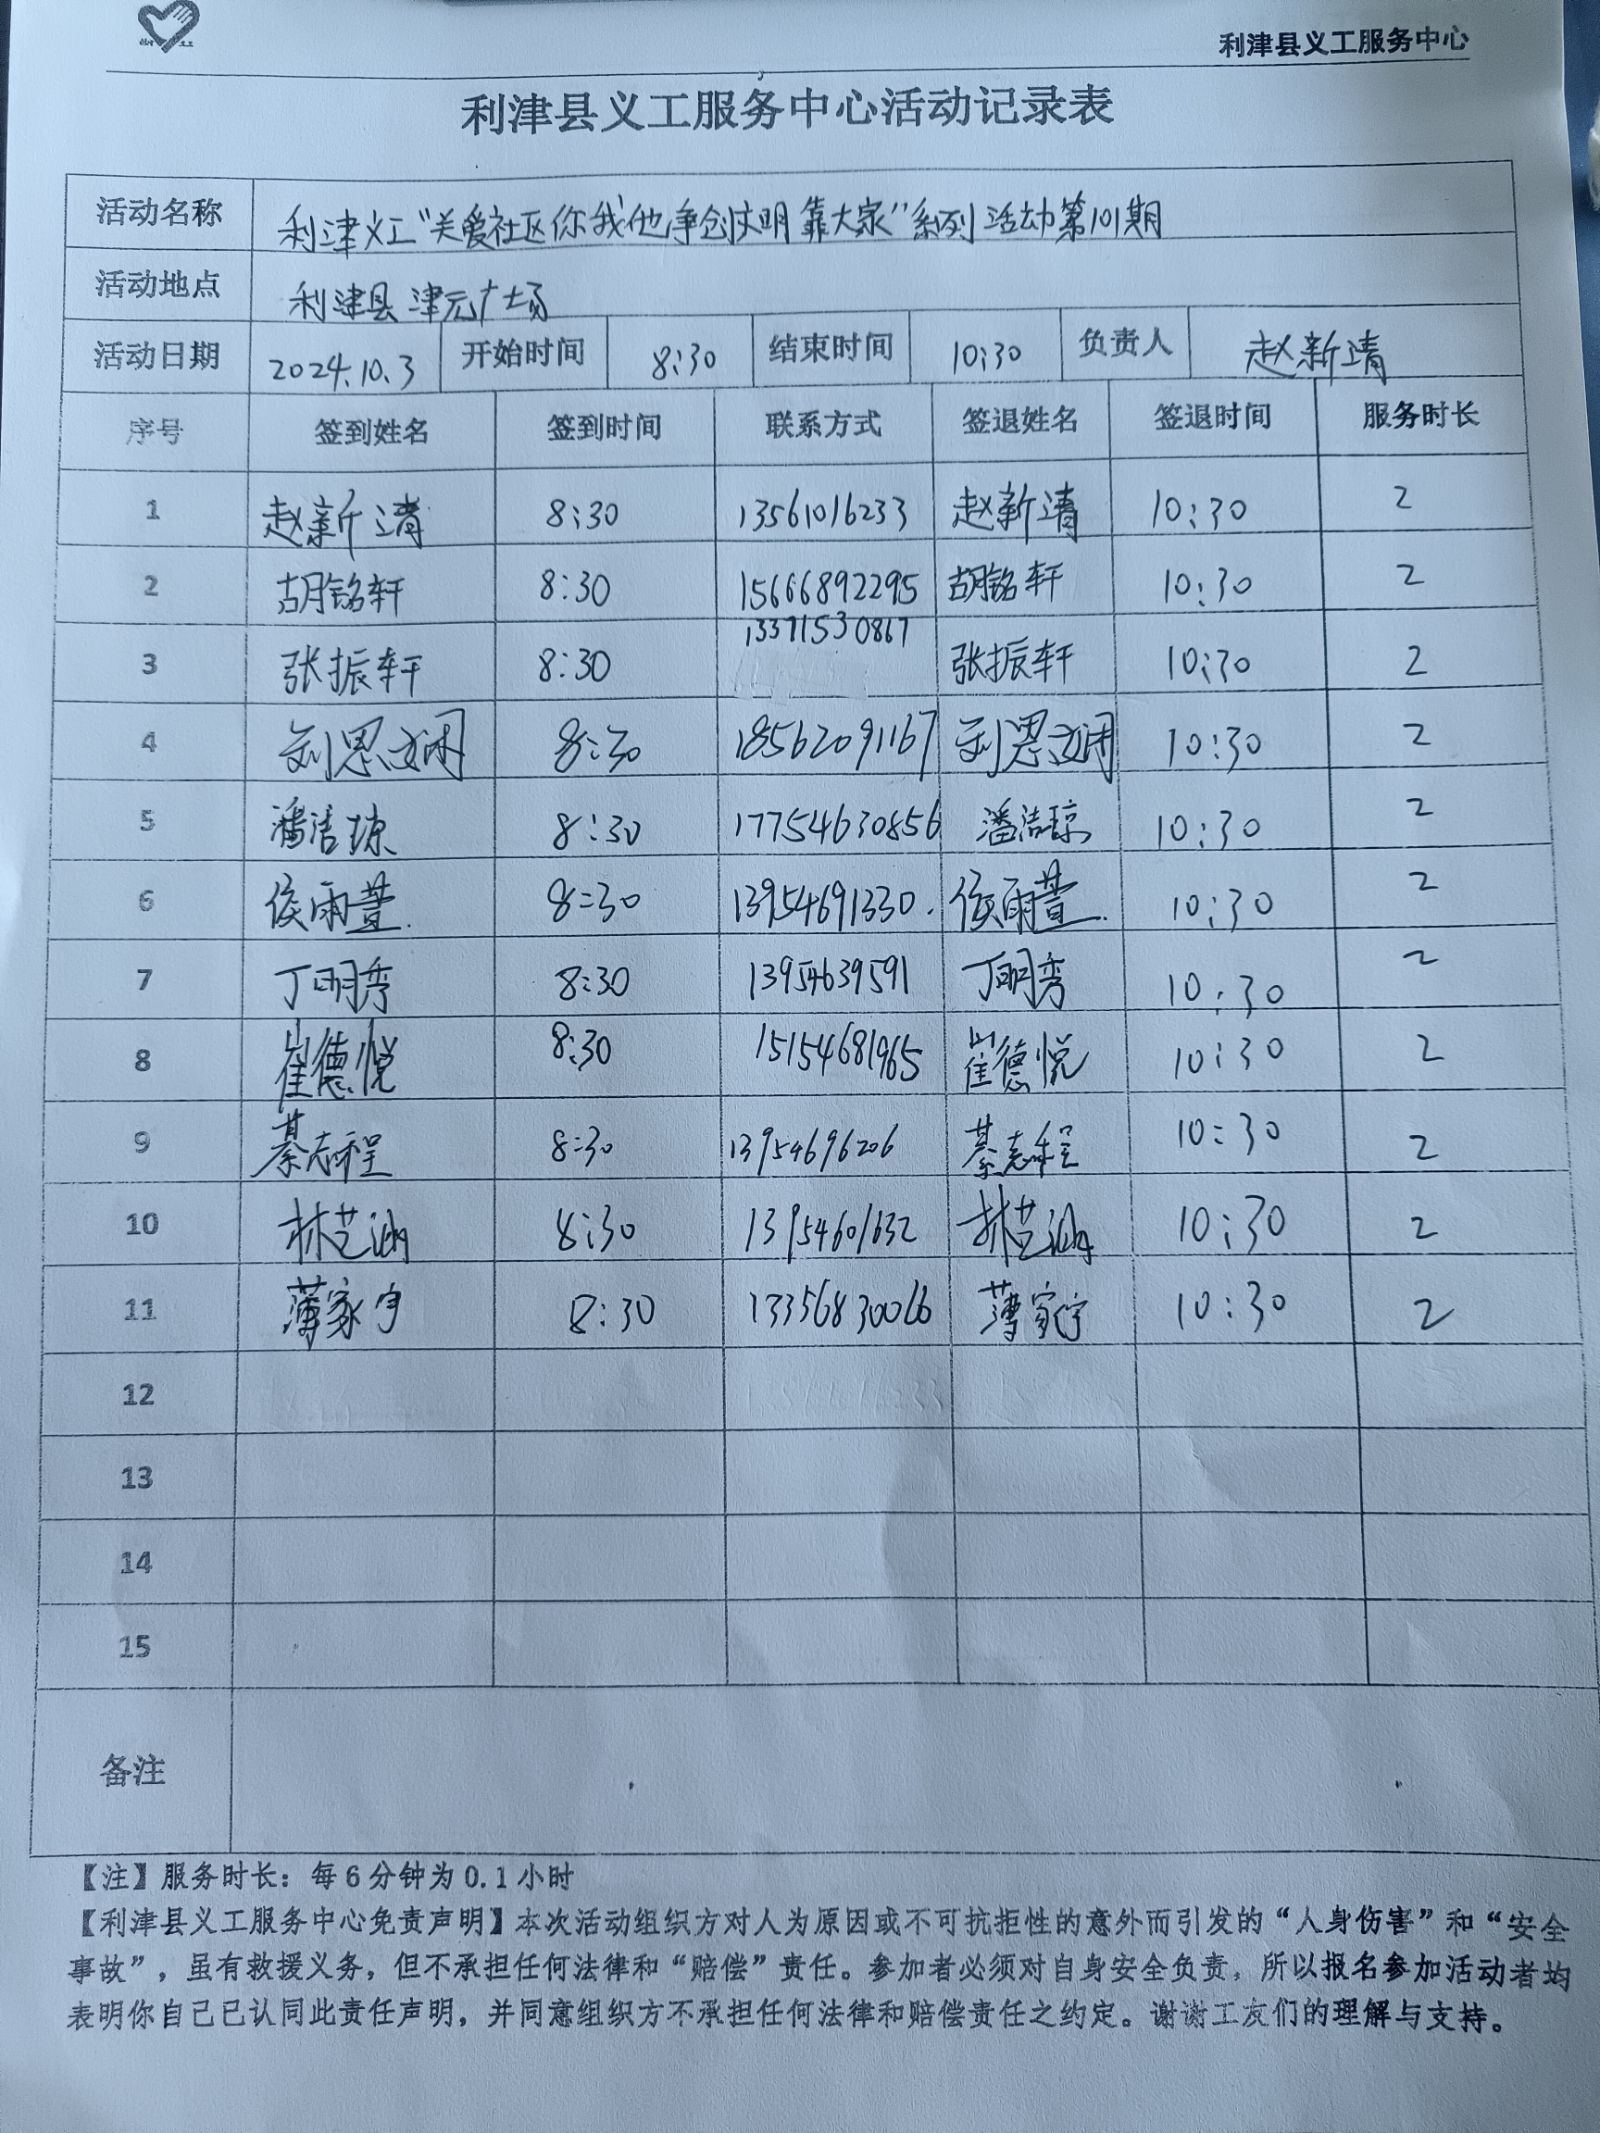 利津县义工服务中心
利津县义工服务中心活动记录表
活动名称 利津义工“关爱社区你我他争创文明靠大家”系列活动第101期
活动地点 利津县津元广场
活动日期 2024.10.3 开始时间 8:30 结束时间 10:30 负责人 赵新清
序号 签到姓名 签到时间 联系方式 签退姓名 签退时间 服务时长
1 赵新清 8:30 13561016233 赵新清 10:30 2
2 胡铭轩 8:30 15666892295 胡铭轩 10:30 2
3 张振轩 8:30 13371530867 张振轩 10:30 2
4 刘恩 8:30 18562091167 刘恩 10:30 2
5 潘洁琼 8:30 17754630856 潘洁琼 10:30 2
6 侯雨萱. 8:30 13954691330. 侯雨萱. 10:30 2
7 丁明秀 8:30 13954639591 丁明秀 10:30 2
8 崔德悦 8:30 15154681965 崔德悦 10:30 2
9 綦志程 8:30 13954696206 綦志程 10:30 2
10 林芝涵 8:30 13954601632 林芝涵 10:30 2
11 薄家宇 8:30 13356830066 薄家宇 10:30 2
12
13
14
15
备注
【注】服务时长：每6分钟为0.1小时
【利津县义工服务中心免责声明】本次活动组织方对人为原因或不可抗拒性的意外而引发的“人身伤害”和“安全
事故”，虽有救援义务，但不承担任何法律和“赔偿”责任。参加者必须对自身安全负责，所以报名参加活动者均
表明你自己已认同此责任声明，并同意组织方不承担任何法律和赔偿责任之约定。谢谢工友们的理解与支持。